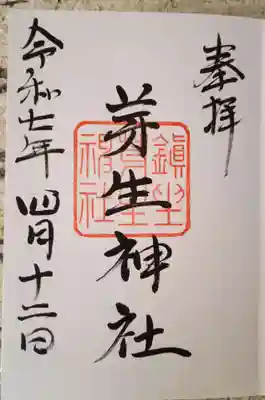 奉拝
芽生神社
令和七年四月十二日
鎮坐
神社